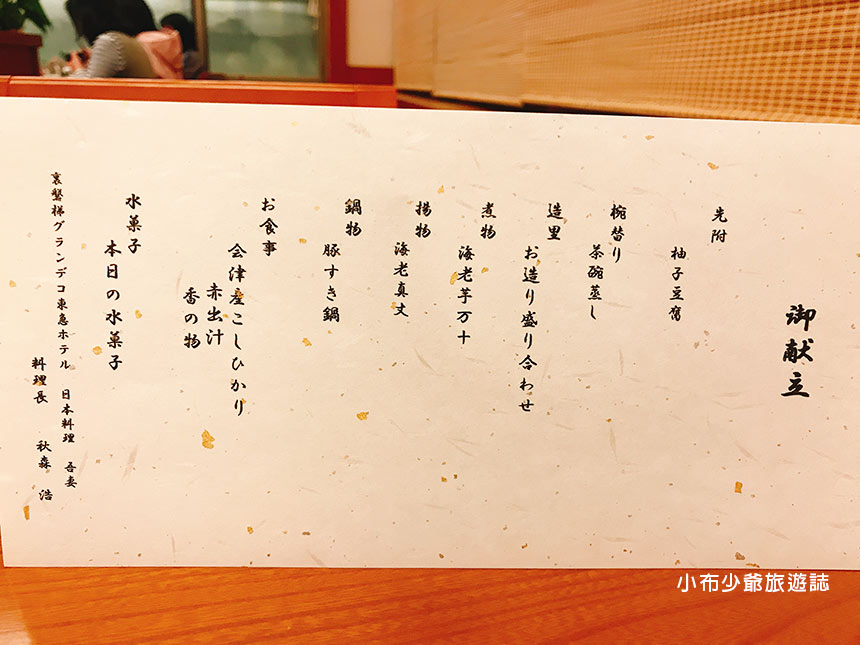 御献立
先附
柚子豆腐
椀替り
茶碗蒸し
造里
お造り盛り合わせ
煮物
海老芋万十
揚物
海老真丈
鍋物
豚すき鍋
お食事
会津産こしひかり
赤出汁
香の物
水菓子
本日の水菓子
裏磐梯グランデコ東急ホテル 日本料理 吾妻
料理長 秋森 浩
小布少爺旅遊誌